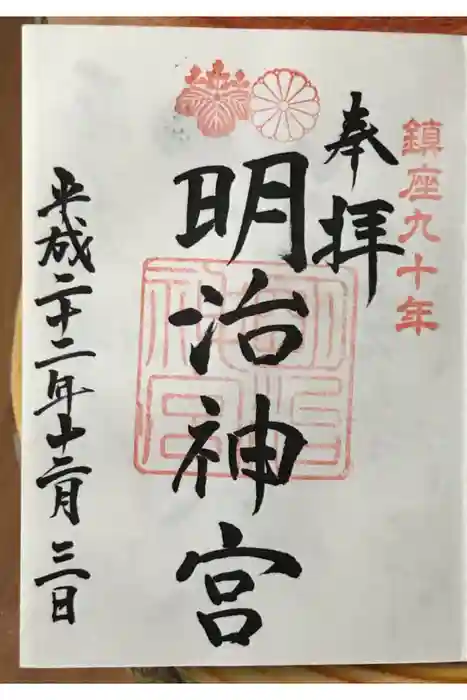 鎮座九十年
奉拝
明治神宮
明治神宮
平成二十二年十二月三日